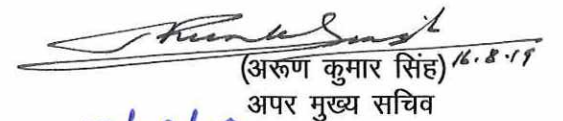 (अरूण कुमार सिंह) 16.8.19
अपर मुख्य सचिव